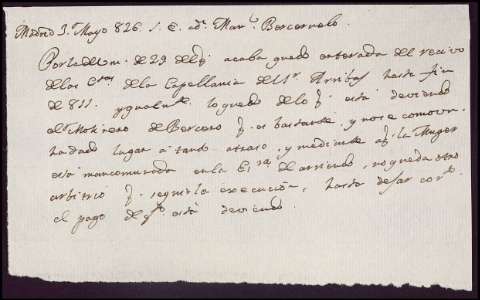 Madrid 3. Mayo 826. S. C. dn. Man.l Bercervelo.
Por la de Vm. de 29 del q. acaba quedo enterada del recivo
de las Ctas. de la Capellania del Sr. Arribas hasta fin
de 811. ygualmte. lo quedo de lo q. está deviendo
el Molinero de Bercero q. es bastante, y no se como se
ha dado lugar á tanto atraso, y mediante aq. la Muger
está mancomunada en la de arriendo, no queda otro
arbitrio q. seguir la execucion, hasta dejar corte.
el pago de q. está deviendo.